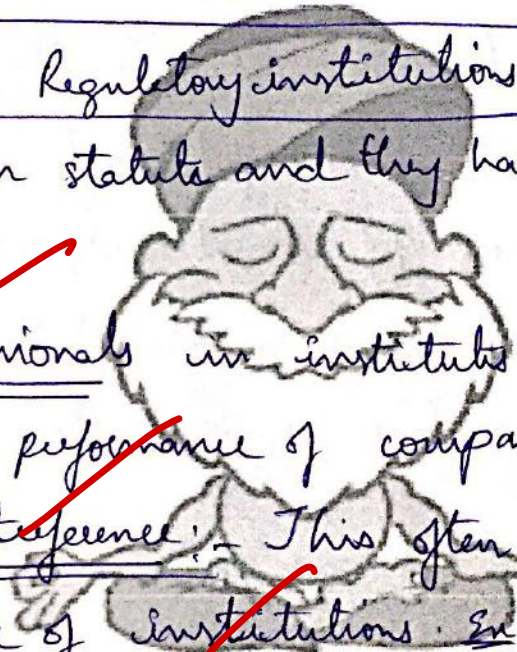 Regulatory institutions
statute and they ha
in institutes
performance of compa
This often
of institutions. En